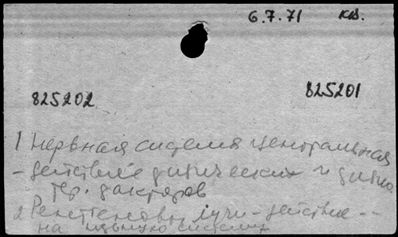 6.7.71 КВ.
825202 825201
1 Нервная система центральная
- действие физических и физио
тер. факторов
2 Рентгеновы лучи - действие --
на нервную систему